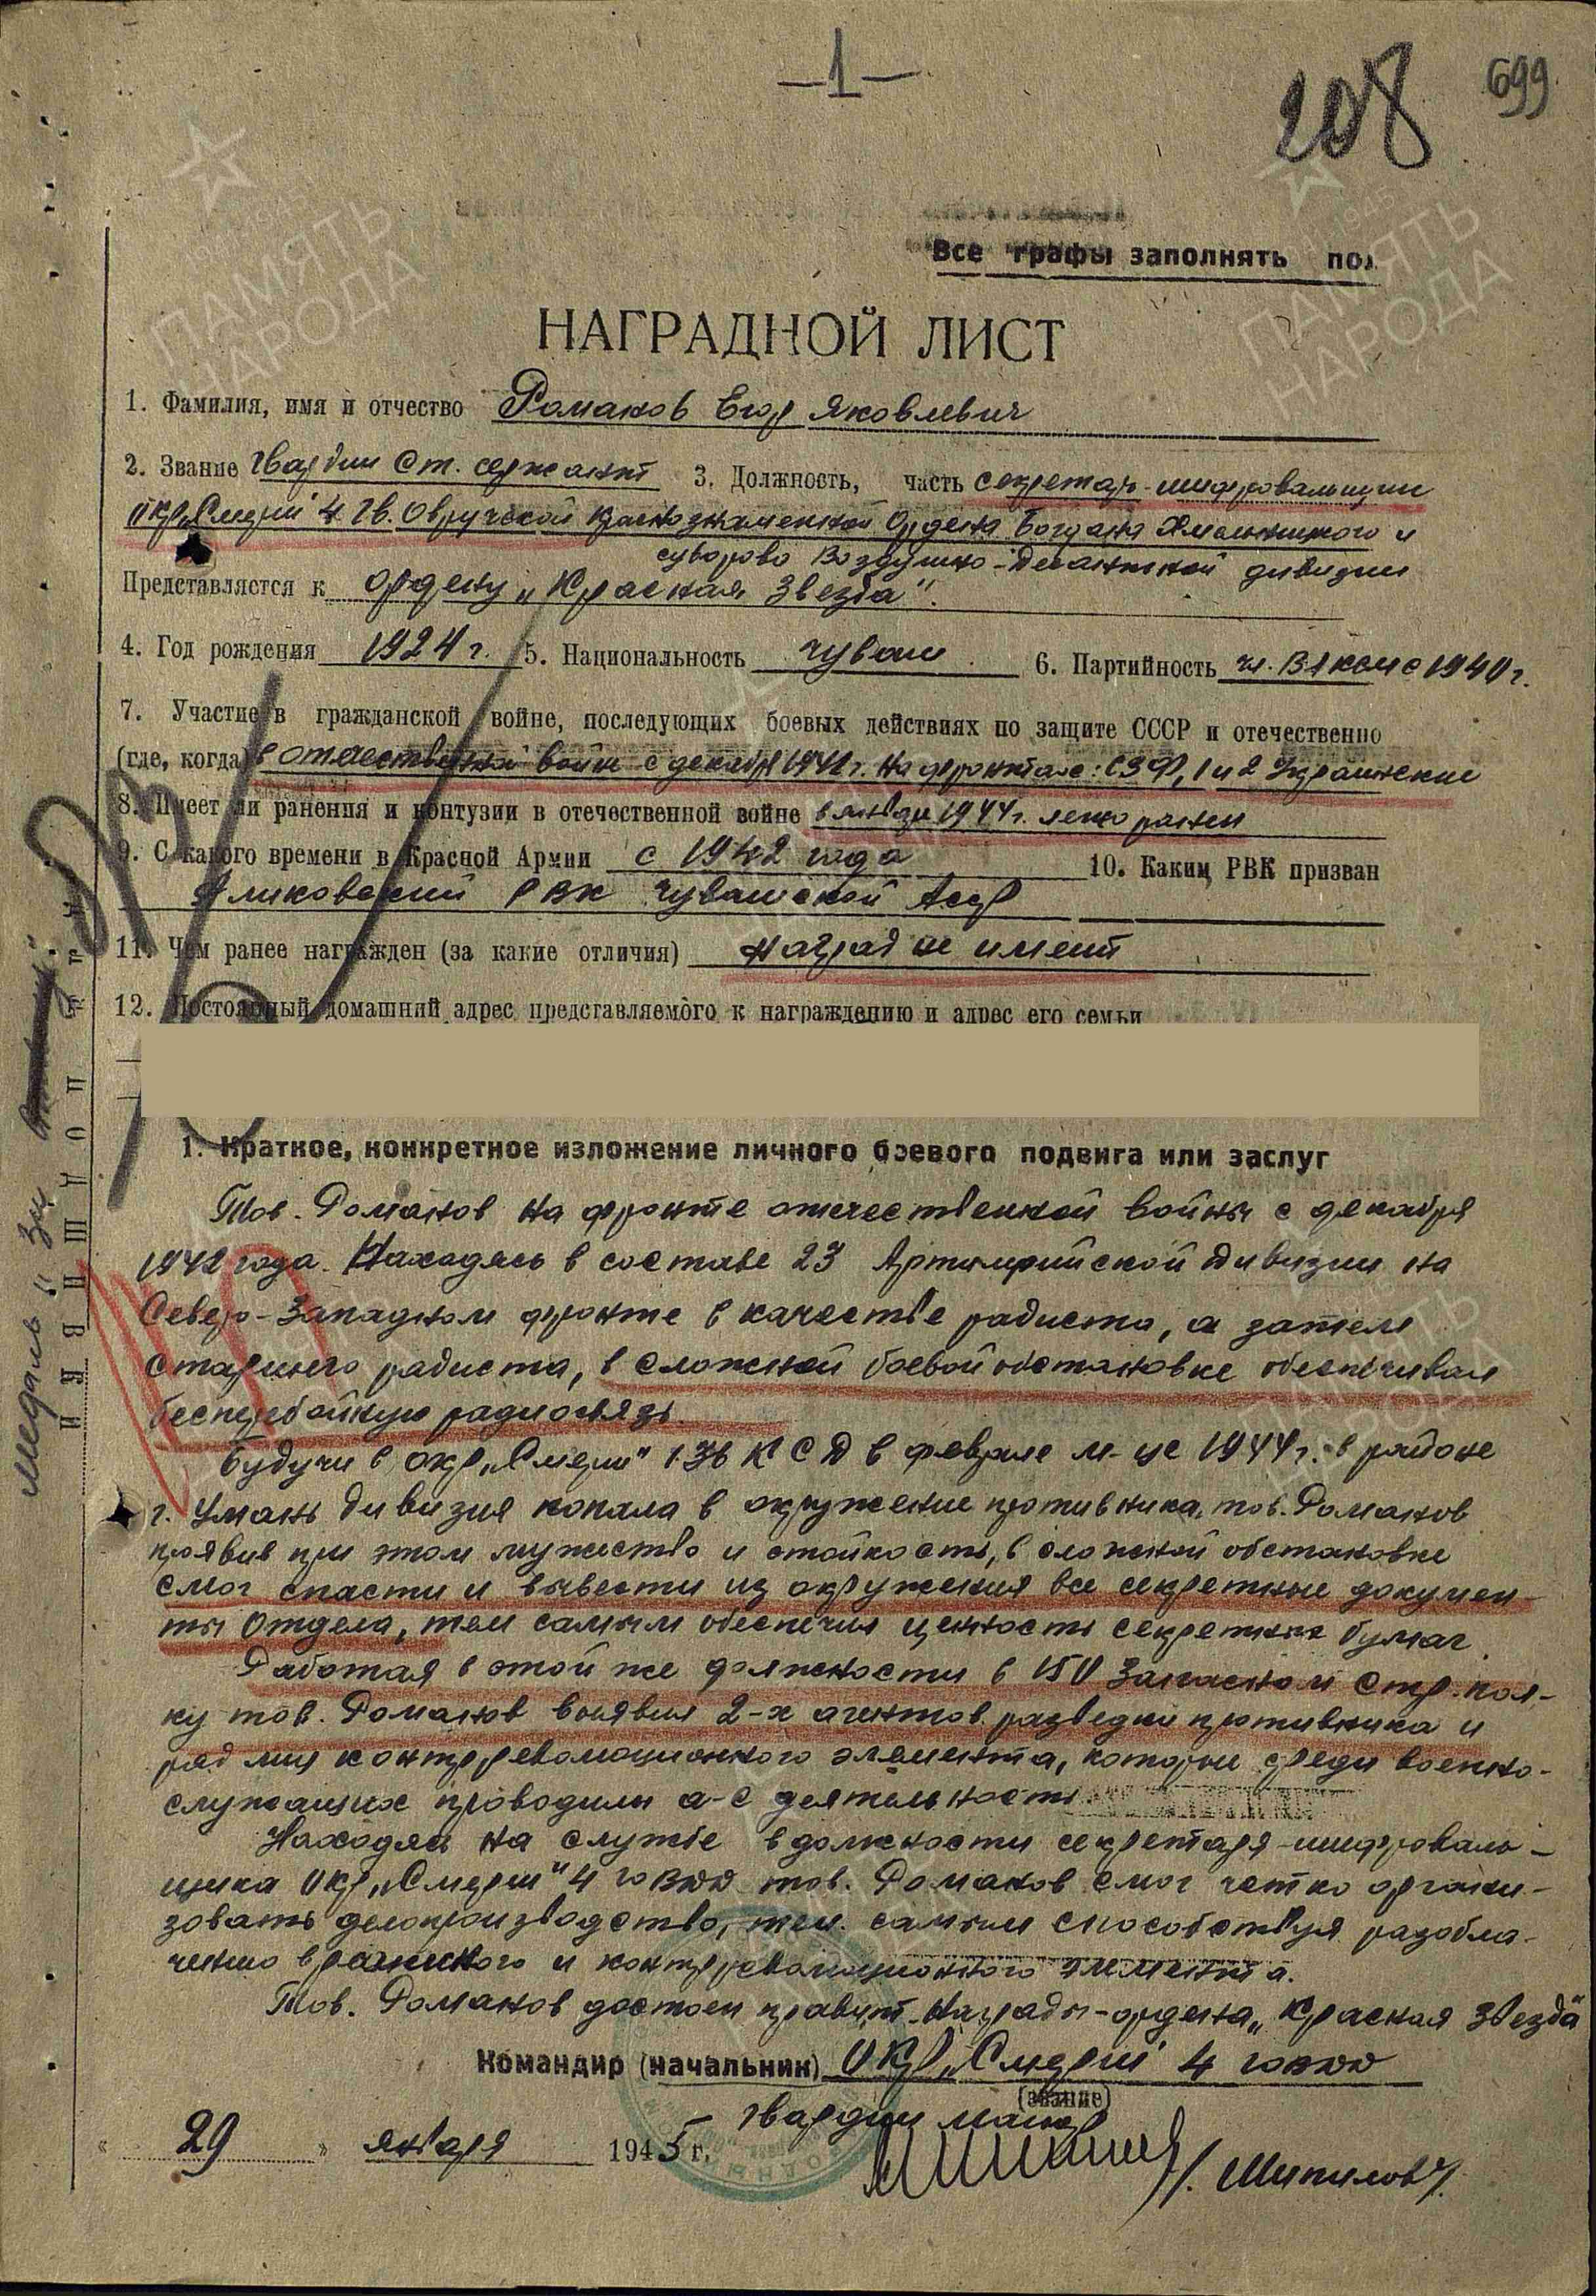 —1—
208
699
Все графы заполнять пол
НАГРАДНОЙ ЛИСТ
1. Фамилия, имя и отчество Романов Егор Яковлевич
2. Звание гвардии Ст. сержант 3. Должность, часть секретарь-шифровальщик
ОКР „Смерш" 4 Гв. Овручской Краснознаменной Ордена Богдана Хмельницкого и
Суворова Воздушно-Десантной дивизии
Представляется к ордену „Красная Звезда".
4. Год рождения 1924 г. 5. Национальность чуваш 6. Партийность чл. ВЛКСМ с 1940 г.
7. Участие в гражданской войне, последующих боевых действиях по защите СССР и отечественно
(где, когда) в отечественной войне с декабря 1942 г. на фронтах: СЗФ, 1 и 2 Украинские
8. Имеет ли ранения и контузии в отечественной войне в январе 1944 г. легко ранен
9. С какого времени в Красной Армии с 1942 года 10. Каким РВК призван
Аликовский РВК Чувашской АССР
11. Чем ранее награжден (за какие отличия) наград не имеет
12. Постоянный домашний адрес представляемого к награждению и адрес его семьи
1. Краткое, конкретное изложение личного боевого подвига или заслуг
Тов. Романов на фронте отечественной войны с декабря
1942 года. Находясь в составе 23 Артиллрийской дивизии на
Северо-Западном фронте в качестве радиста, а затем
старшего радиста, в сложной боевой обстановке обеспечивал
бесперебойную радиосвязь.
Будучи в ОКР „Смерш" 1 Зв К С Д в феврале м-це 1944 г. в районе
г. Умань дивизия попала в окружение противника, тов. Романов
проявив при этом мужество и стойкость, в сложной обстановке
смог спасти и вывести из окружения все секретные докумен-
ты Отдела, тем самым обеспечил ценность секретных бумаг.
Работая в этой же должности в 150 Запасном Стр. пол-
ку тов. Романов выявил 2-х агентов разведки противника и
ряд лиц контрреволюционного элемента, которые среди военно-
служащих проводили а-с деятельность
Находясь на службе в должности секретаря-шифроваль-
щика ОКР „Смерш" 4 гвВДД тов. Романов смог четко органи-
зовать делопроизводство, тем самым способствуя разобла-
чению вражеского и контрреволюционного элемента.
Тов. Романов достоин правит. награды-ордена „Красная Звезда"
Командир (начальник) ОКР „Смерш" 4 гвВДД
(звание)
гвардии майор
„ 29 " января 1945 г.
/. Шипилов /.
Медаль „За
ИЗ ПОДШИВКИ
ПАМЯТЬ НАРОДА